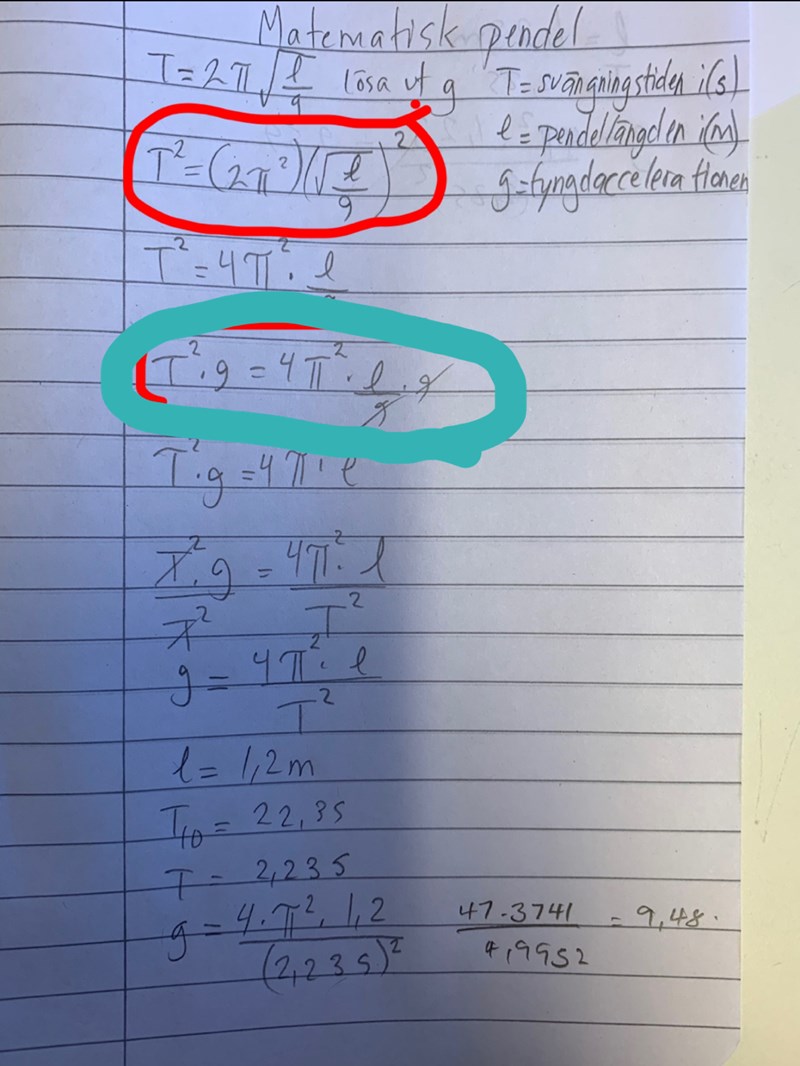 Matematisk pendel
T = 2π√(l/g) lösa ut g T = svängningstiden i (s)
l = pendellängden i (m)
T² = (2π²)(√(l/g))² g = tyngdaccelerationen
T² = 4π² · l/
T² · g = 4π² · l/g · g
T² · g = 4π · l
T² · g/T² = 4π² · l/T²
g = 4π² · l/T²
l = 1,2 m
T₁₀ = 22,35
T = 2,235
g = 4 · π² · 1,2/(2,235)² 47.3741/4,9952 = 9,48.